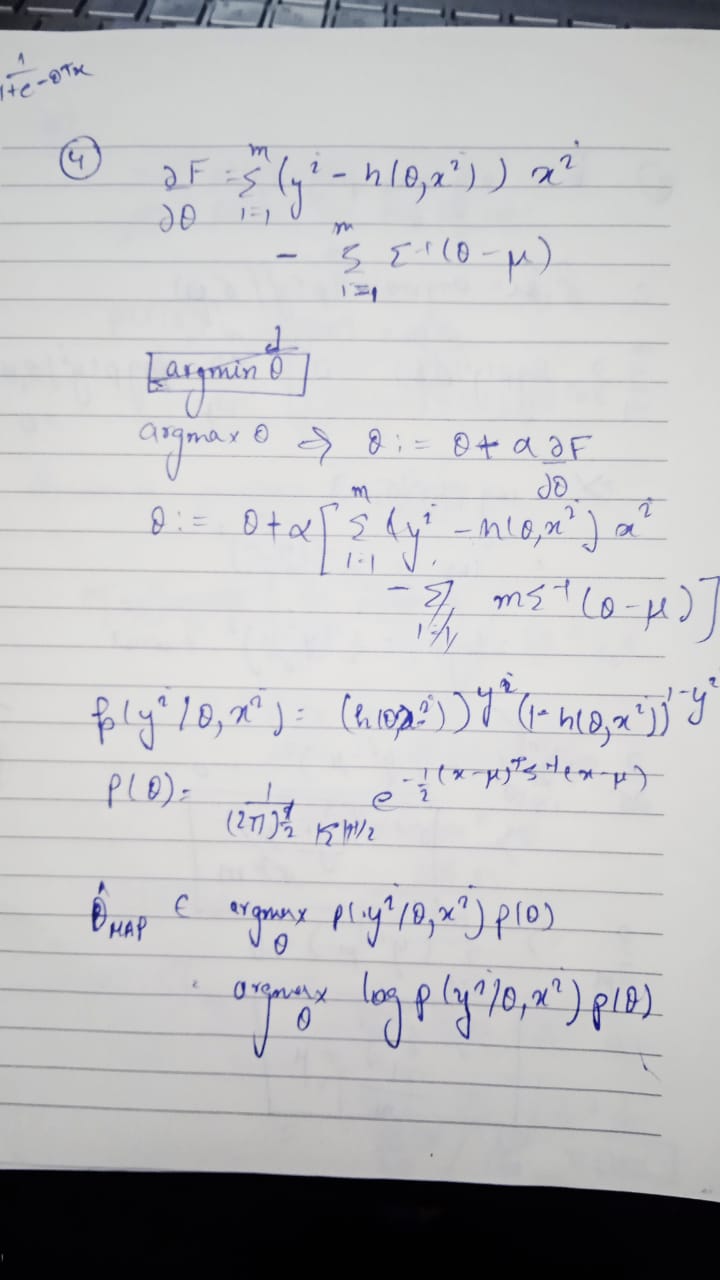 1/(1+e^-θᵀx)
④ ∂F/∂θ = Σ_{i=1}^{m} (yⁱ - h(θ,xⁱ)) xⁱ
- Σ_{i=1}^{m} Σ⁻¹(θ-μ)
[argmin θ]
argmax θ ⇒ θ := θ + α ∂F/∂θ
θ := θ + α[ Σ_{i=1}^{m} (yⁱ - h(θ,xⁱ) xⁱ
- mΣ⁻¹(θ-μ) ]
p(yⁱ/θ,xⁱ) = (h(θ,xⁱ))^yⁱ (1-h(θ,xⁱ))^1-yⁱ
P(θ) = 1/((2π)^d/2 |Σ|^1/2) e^-1/2(x-μ)ᵀΣ⁻¹(x-μ)
θ̂_MAP ∈ argmax_θ p(yⁱ/θ,xⁱ) p(θ)
argmax_θ log p(yⁱ/θ,xⁱ) p(θ)